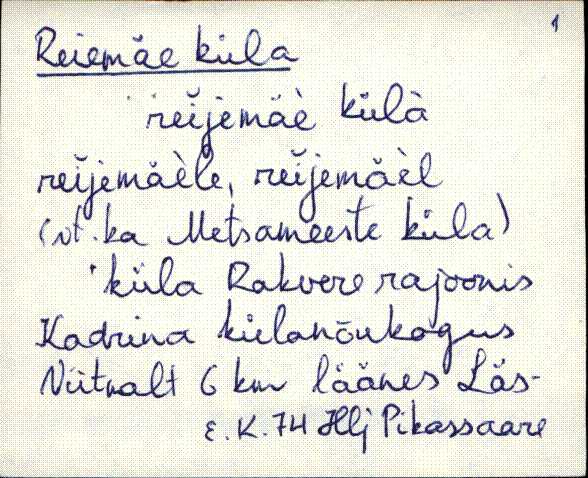 1
Reiemäe küla
reĭjemäè külà
reĭjemäèle, reĭjemäèl
(vt. ka Metsameeste küla)
küla Rakvere rajoonis
Kadrina külanõukogus
Viitnalt 6 km läänes Läs-
E. K. 74 Hlj Pikassaare